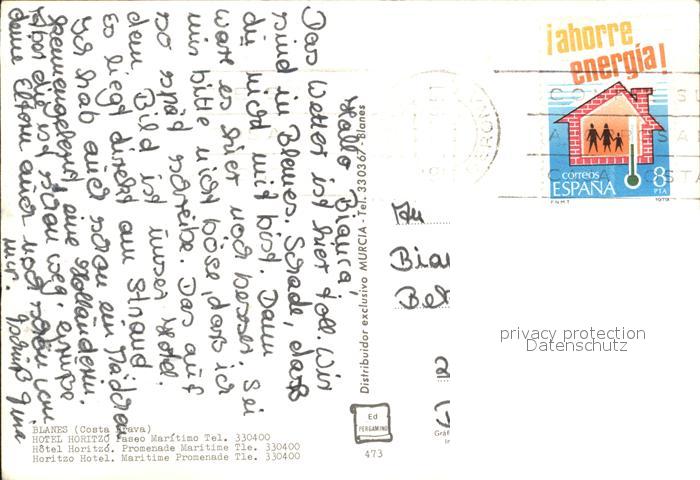 Hallo Bianca,
Das Wetter ist hier toll. Wir
sind in Blanes. Schade, daß
du nicht mit bist. Dann
wäre es hier noch besser. Sei
mir bitte nicht böse, daß ich
so spät schreibe. Das auf
dem Bild ist unser Hotel.
Es liegt direkt am Strand
Ich hab auch schon ein Mädchen
kennengelernt eine Holländerin.
Aber die ist schon weg. Grüße
deine Eltern auch noch schön von
mir.
BLANES (Costa Brava)
HOTEL HORITZÓ Paseo Marítimo Tel. 330400
Hôtel Horitzó. Promenade Maritime Tle. 330400
Horitzo Hotel. Maritime Promenade Tle. 330400
Distribuidor exclusivo MURCIA - Tel. 330367 - Blanes
Ed
PERGAMINO
473
An
Bian
Be
¡ahorre
energía!
correos
ESPAÑA
8
PTA
F.N.M.T.
1979
privacy protection
Datenschutz